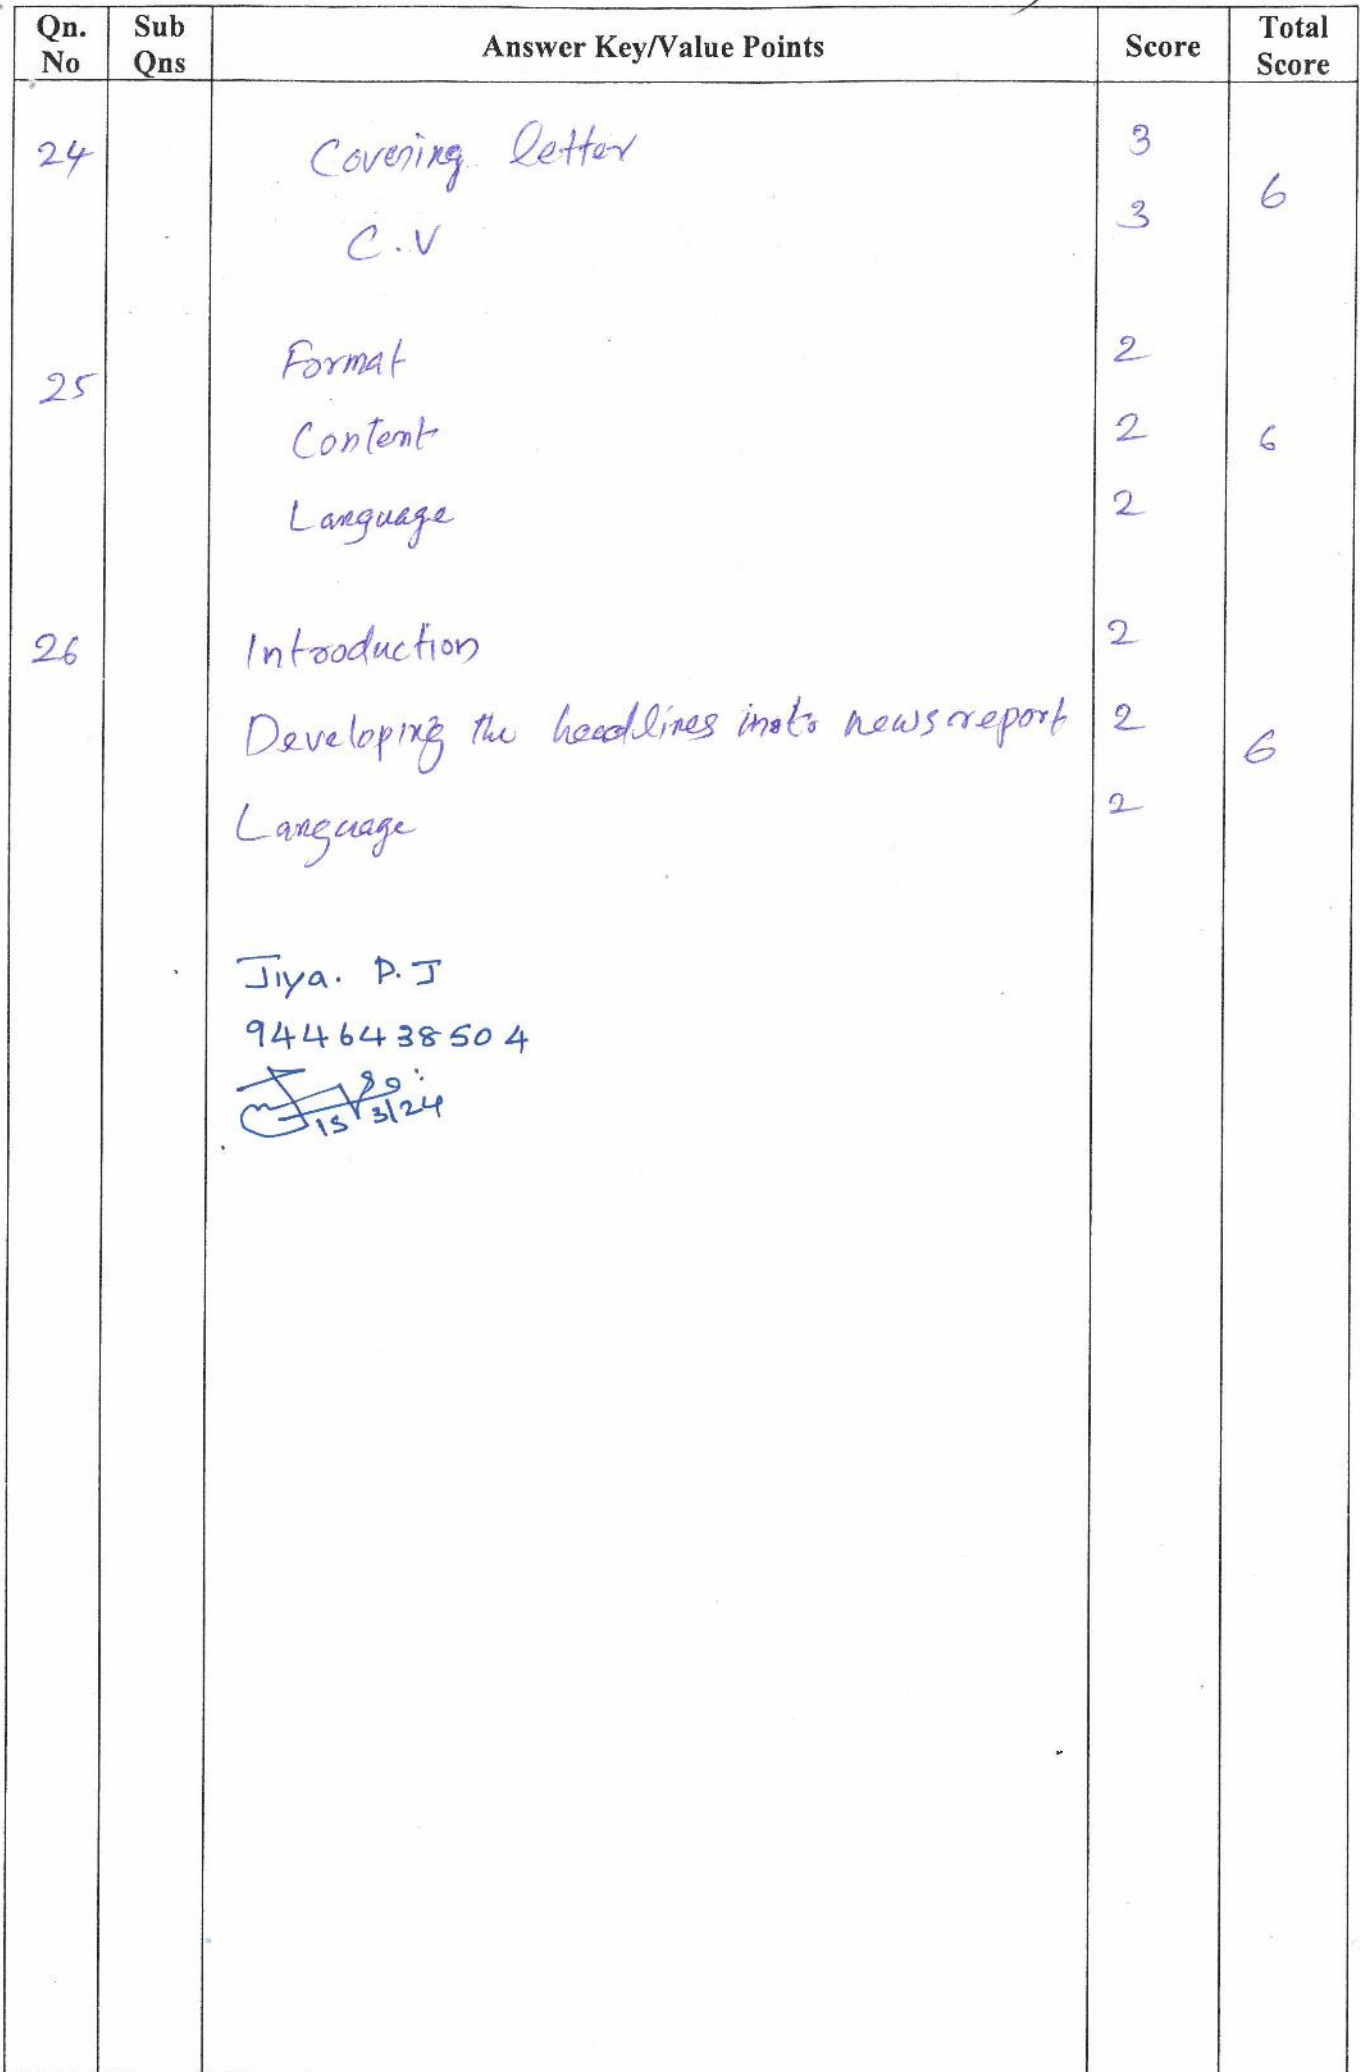 Qn. No Sub Qns Answer Key/Value Points Score Total Score
24 Covering letter 3
6
C.V 3
Format 2
25
Content 2 6
Language 2
26 Introduction 2
Developing the headlines into news report 2
6
Language 2
Jiya. P.J
9446438504
15/3/24